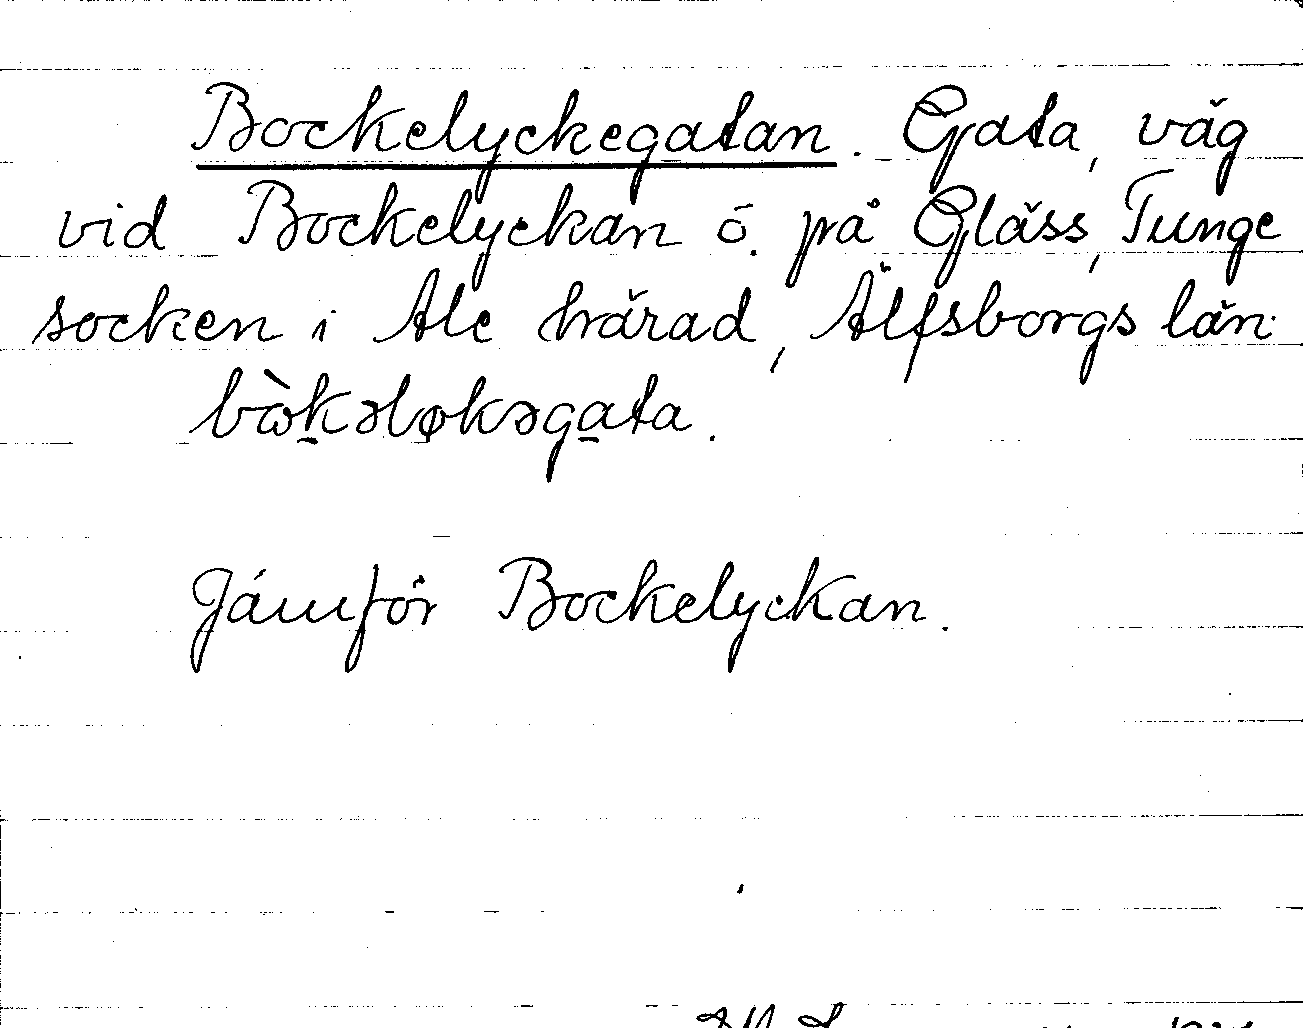 Bockelyckegatan. Gata, väg
vid Bockelyckan ö. på Gläss, Tunge
socken i Ale härad, Älfsborgs län.
bòkəløkəgata.
Jämför Bockelyckan.